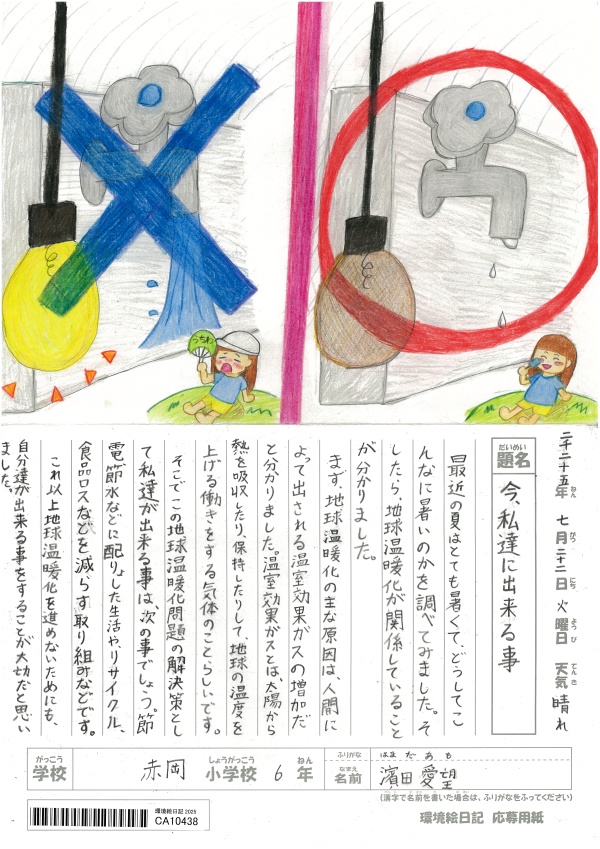 うちわ
二千二十五年 七月二十二日 火曜日 天気 晴れ
ねん がつ にち よう び てん き
だいめい
題名 今、私達に出来る事
最近の夏はとても暑くて、どうしてこ
んなに暑いのかを調べてみました。そ
したら、地球温暖化が関係していること
が分かりました。
まず、地球温暖化の主な原因は、人間に
よって出される温室効果ガスの増加だ
と分かりました。温室効果ガスとは、太陽から
熱を吸収したり、保持したりして、地球の温度を
上げる働きをする気体のことらしいです。
そこでこの地球温暖化問題の解決策とし
て私達が出来る事は、次の事でしょう。節
電節水などに配りょした生活や、リサイクル、
食品ロスなどを減らす取り組みなどです。
これ以上地球温暖化を進めないためにも、
自分達が出来る事をすることが大切だと思い
ました。
がっこう しょうがっこう ねん ふりがな はまだ あも
学校 赤岡 小学校 6 年 なまえ 名前 濱田愛望
(漢字で名前を書いた場合は、ふりがなをふってください)
環境絵日記 応募用紙
環境絵日記 2025
CA10438